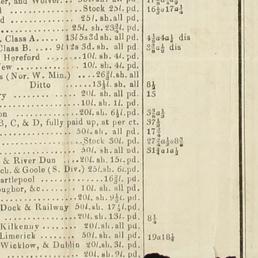 Stock 25l. pd. 16½a17a¼
25l. sh. all pd.
25l. sh. 23¾l. pd.
Class A 13l 5s3d sh. all pd. 4¾a4a¼ dis
Class B. 9l 12s 3d. sh. all pd. 3¾a¼ dis
Hereford 10l. sh. 4l. pd.
10l. sh. 4l. pd.
(Nor. W. Min.) sh. all
Ditto 13¼l. sh all 8¼
50l. sh. all pd. 15
10l. sh. 1l. pd.
20l. sh. 6½l. pd.
B, C, & D, fully paid up, at per ct. 37½
50l. sh. all pd. 17¾
Stock 50l. pd.
50l. sh. all pd.
& River Dun 20l. sh. 15l. pd.
& Goole (S. Div.) 25l. sh. 6l. pd.
artlepool pd.
oughor, &c. 10l. sh. all pd.
20l. sh. 9½l. pd.
Dock & Railway 50l. sh. pd.
20l. sh. 13½l. pd. 8¼
Kilkenny 20l. sh. all pd.
Limerick 50l. sh. all pd. 19a18½
Wicklow, & Dublin 20l. sh. pd.
pd.